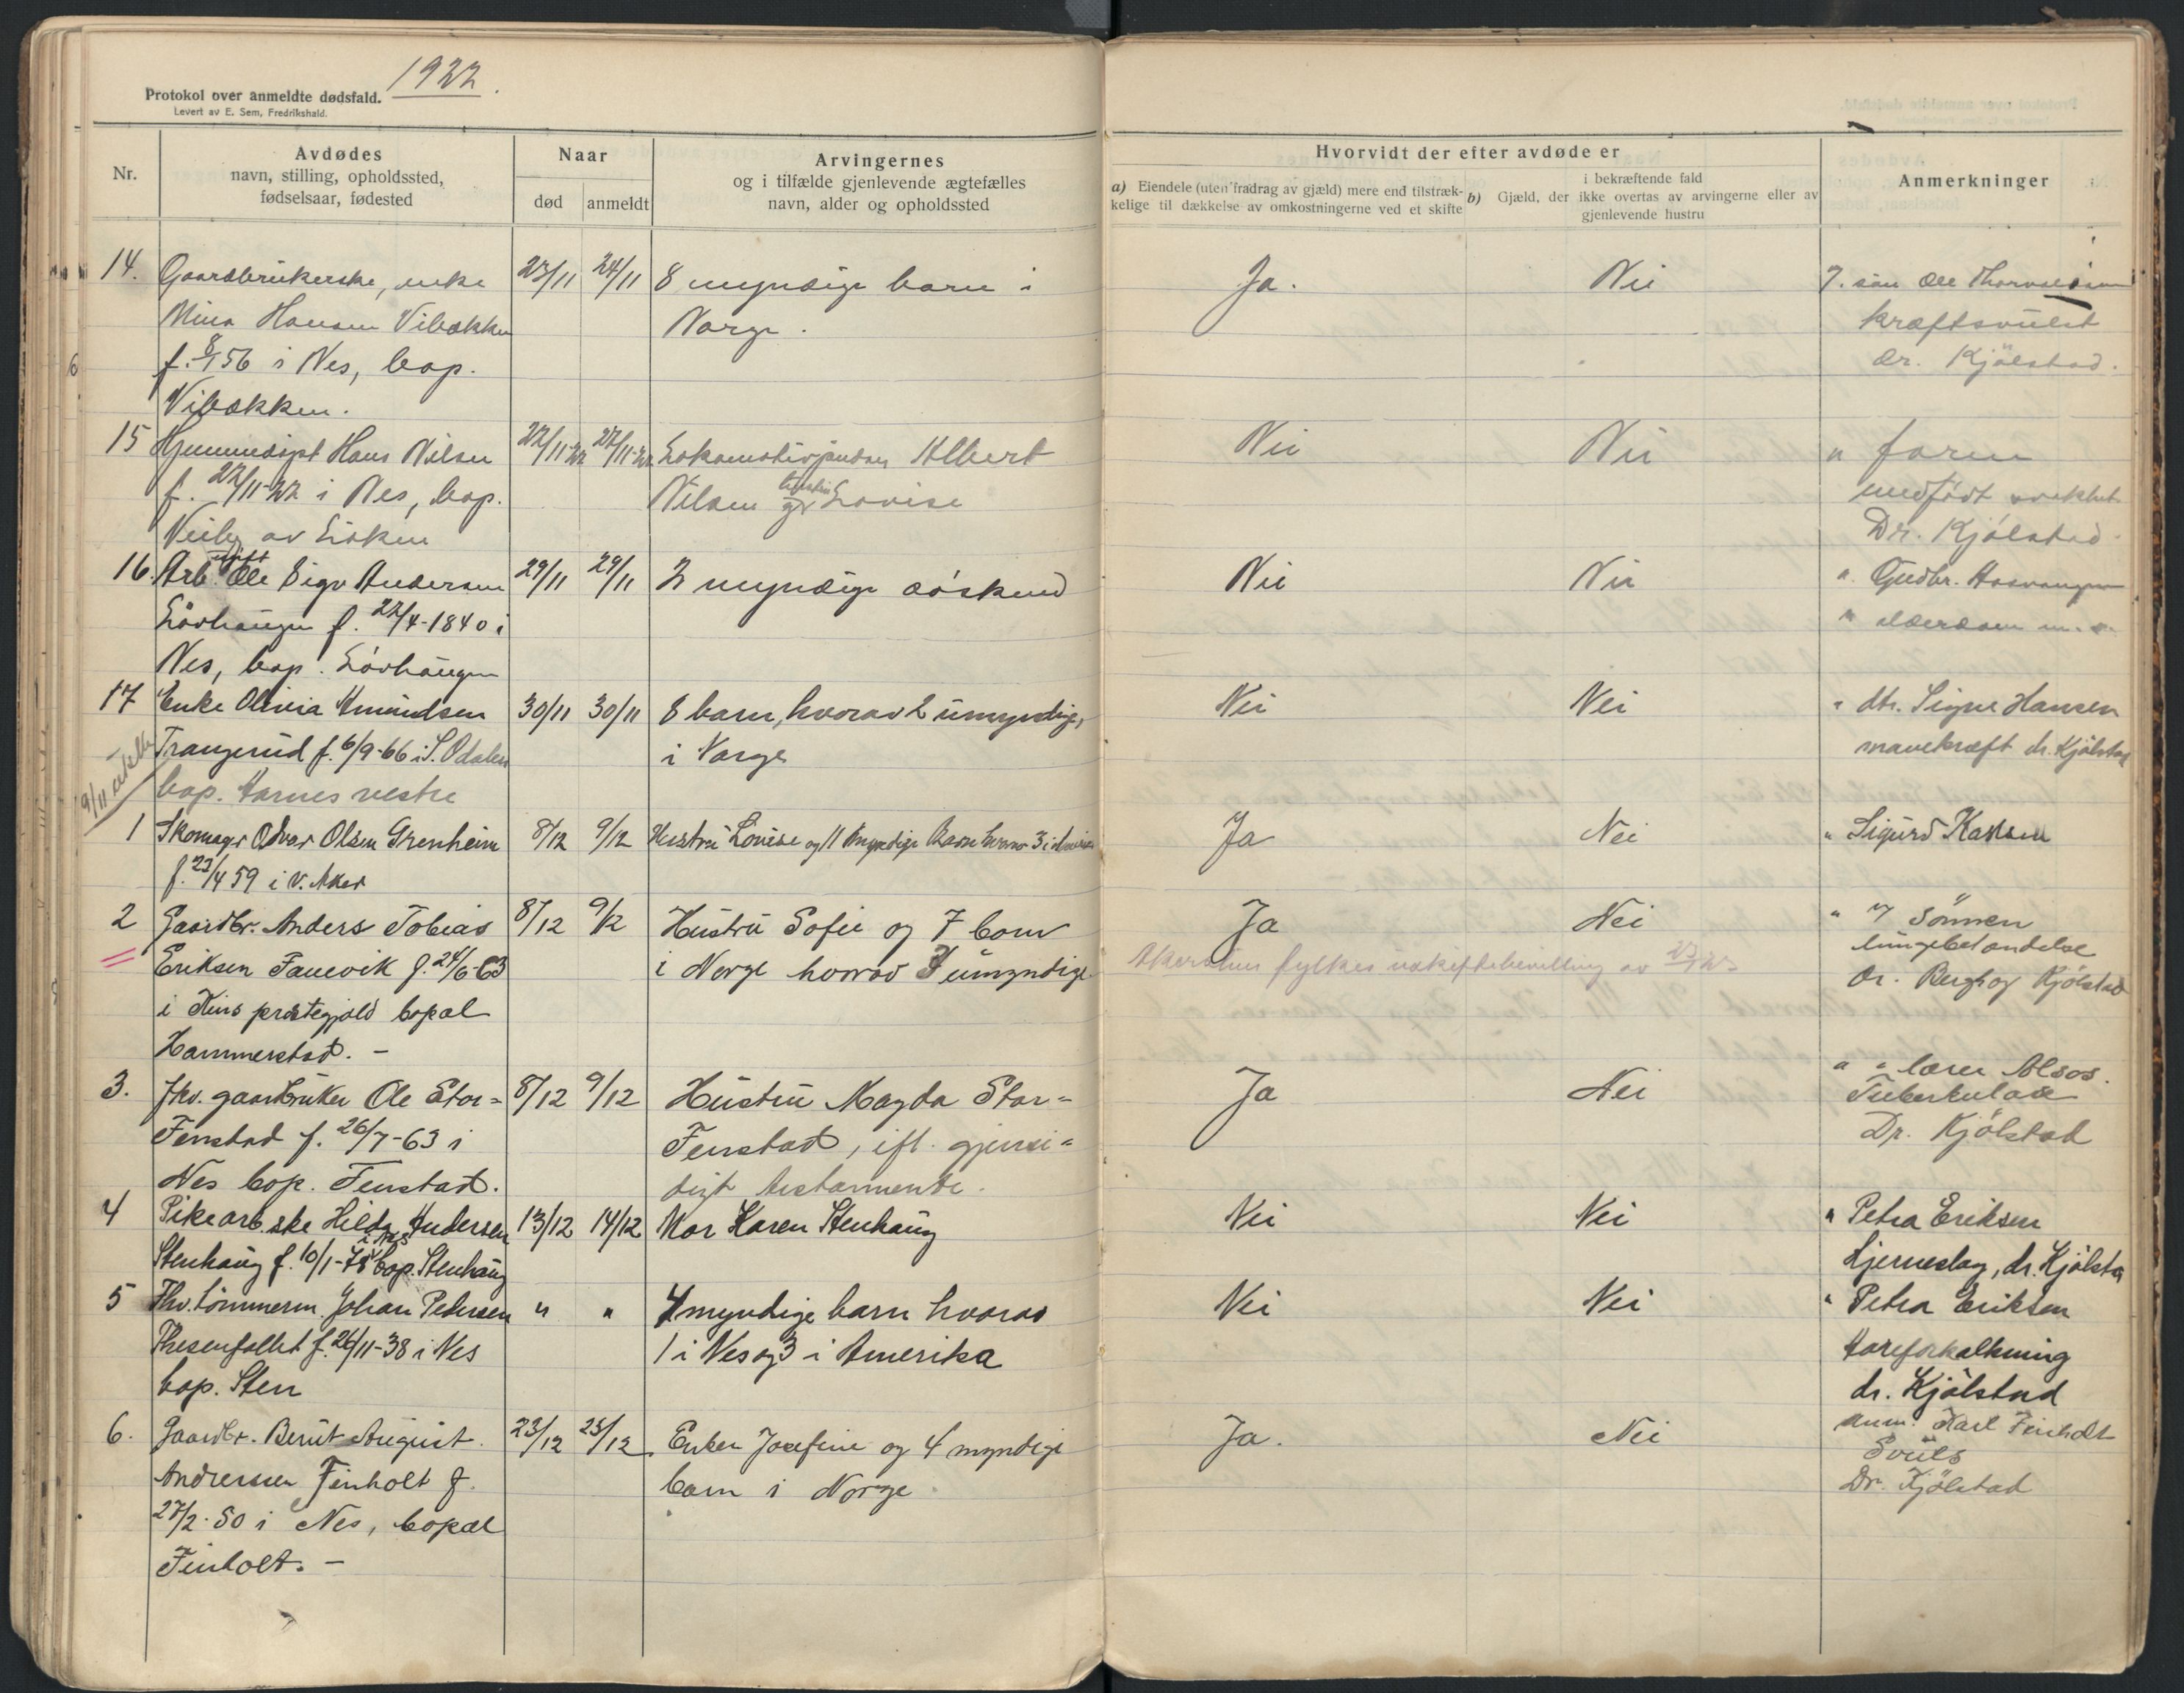 1922.
Protokol over anmeldte dødsfald.
Levert av E. Sem, Fredrikshald.
Nr.
Avdødes
navn, stilling, opholdssted,
fødselsaar, fødested
Naar
død
anmeldt
Arvingernes
og i tilfælde gjenlevende ægtefælles
navn, alder og opholdssted
Hvorvidt der efter avdøde er
a) Eiendele (uten fradrag av gjæld) mere end tilstræk-
kelige til dækkelse av omkostningerne ved et skifte
i bekræftende fald
b) Gjæld, der ikke overtas av arvingerne eller av
gjenlevende hustru
Anmerkninger
14. Gaardbrukerske, enke 23/11 24/11 8 myndige barn i Ja. Nei
Mina Hansen Vibækken Norge. kræftsvulst
f. 8/1 56 i Nes, bop. dr. Kjølstad.
Vibækken.
15 Hjemmedøpt Hans Nilsen 22/11-22 27/11-22 Albert Nei Nei " faren
f. 22/11-22 i Nes, bop. Nilsen og hustru Lovise medfødt
av Dr. Kjølstad.
16. Arb. ugift Ole Sigv Andersen 29/11 29/11 2 myndige søskend Nei Nei " Gudbr.
Lövhaugen f. 22/4-1840 i
Nes, bop. Lövhaugen
17 Enke Olivia Amundsen 30/11 30/11 8 barn, hvorav 2 umyndige, Nei Nei " dtr. Signe Hansen
Trangerud f. 6/9-66 i S. Odalen i Norge mavekræft dr. Kjølstad
bop. Harnes vestre
1 Skomager Olsen Grenheim 8/12 9/12 Hustru Lovise og 11 myndige Barn hvorav 3 i Ja Nei " Sigurd
f. 23/4 59 i V. Aker
2 Gaardbr. Anders Tobias 8/12 9/12 Hustru Sofie og 7 barn Ja Nei " " Sønnen
Eriksen Fauevik f. 24/6-63 i Norge hvorav 3 umyndige Akershus fylkes uskiftebevilling av lungebetændelse
i Kins prestegjæld bopæl Dr. Berg og Kjølstad
Hammerstad. -
3. Fhv. gaardbruker Ole Stor= 8/12 9/12 Hustru Magda Stor= Ja Nei " " lærer Alsos.
Fenstad f. 26/7-63 i Fenstad, ifl. gjensi= Tuberkulose
Nes bop. Fenstad. digt testamente. Dr. Kjølstad
4 Pike arb.ske Hilda Andersen 13/12 14/12 Mor Karen Stenhaug Nei Nei " Petra Eriksen
Stenhaug f. 10/1-78 i Nes bop. Stenhaug Hjerneslag, dr. Kjølsta
5 Fhv. tømmerm. Johan Pedersen " " 4 myndige barn hvorav Nei Nei " Petra Eriksen
Thesenfallet f. 26/11-38 i Nes 1 i Nes og 3 i Amerika Aareforkalkning
bop. Sten dr. Kjølstad
6. Gaardbr. Bernt August 23/12 23/12 Enken Josefine og 4 myndige Ja. Nei anm. Karl Finholt
Andreassen Finholt f. barn i Norge Svuls
27/2-50 i Nes, bopæl Dr. Kjølstad
Finholt. -